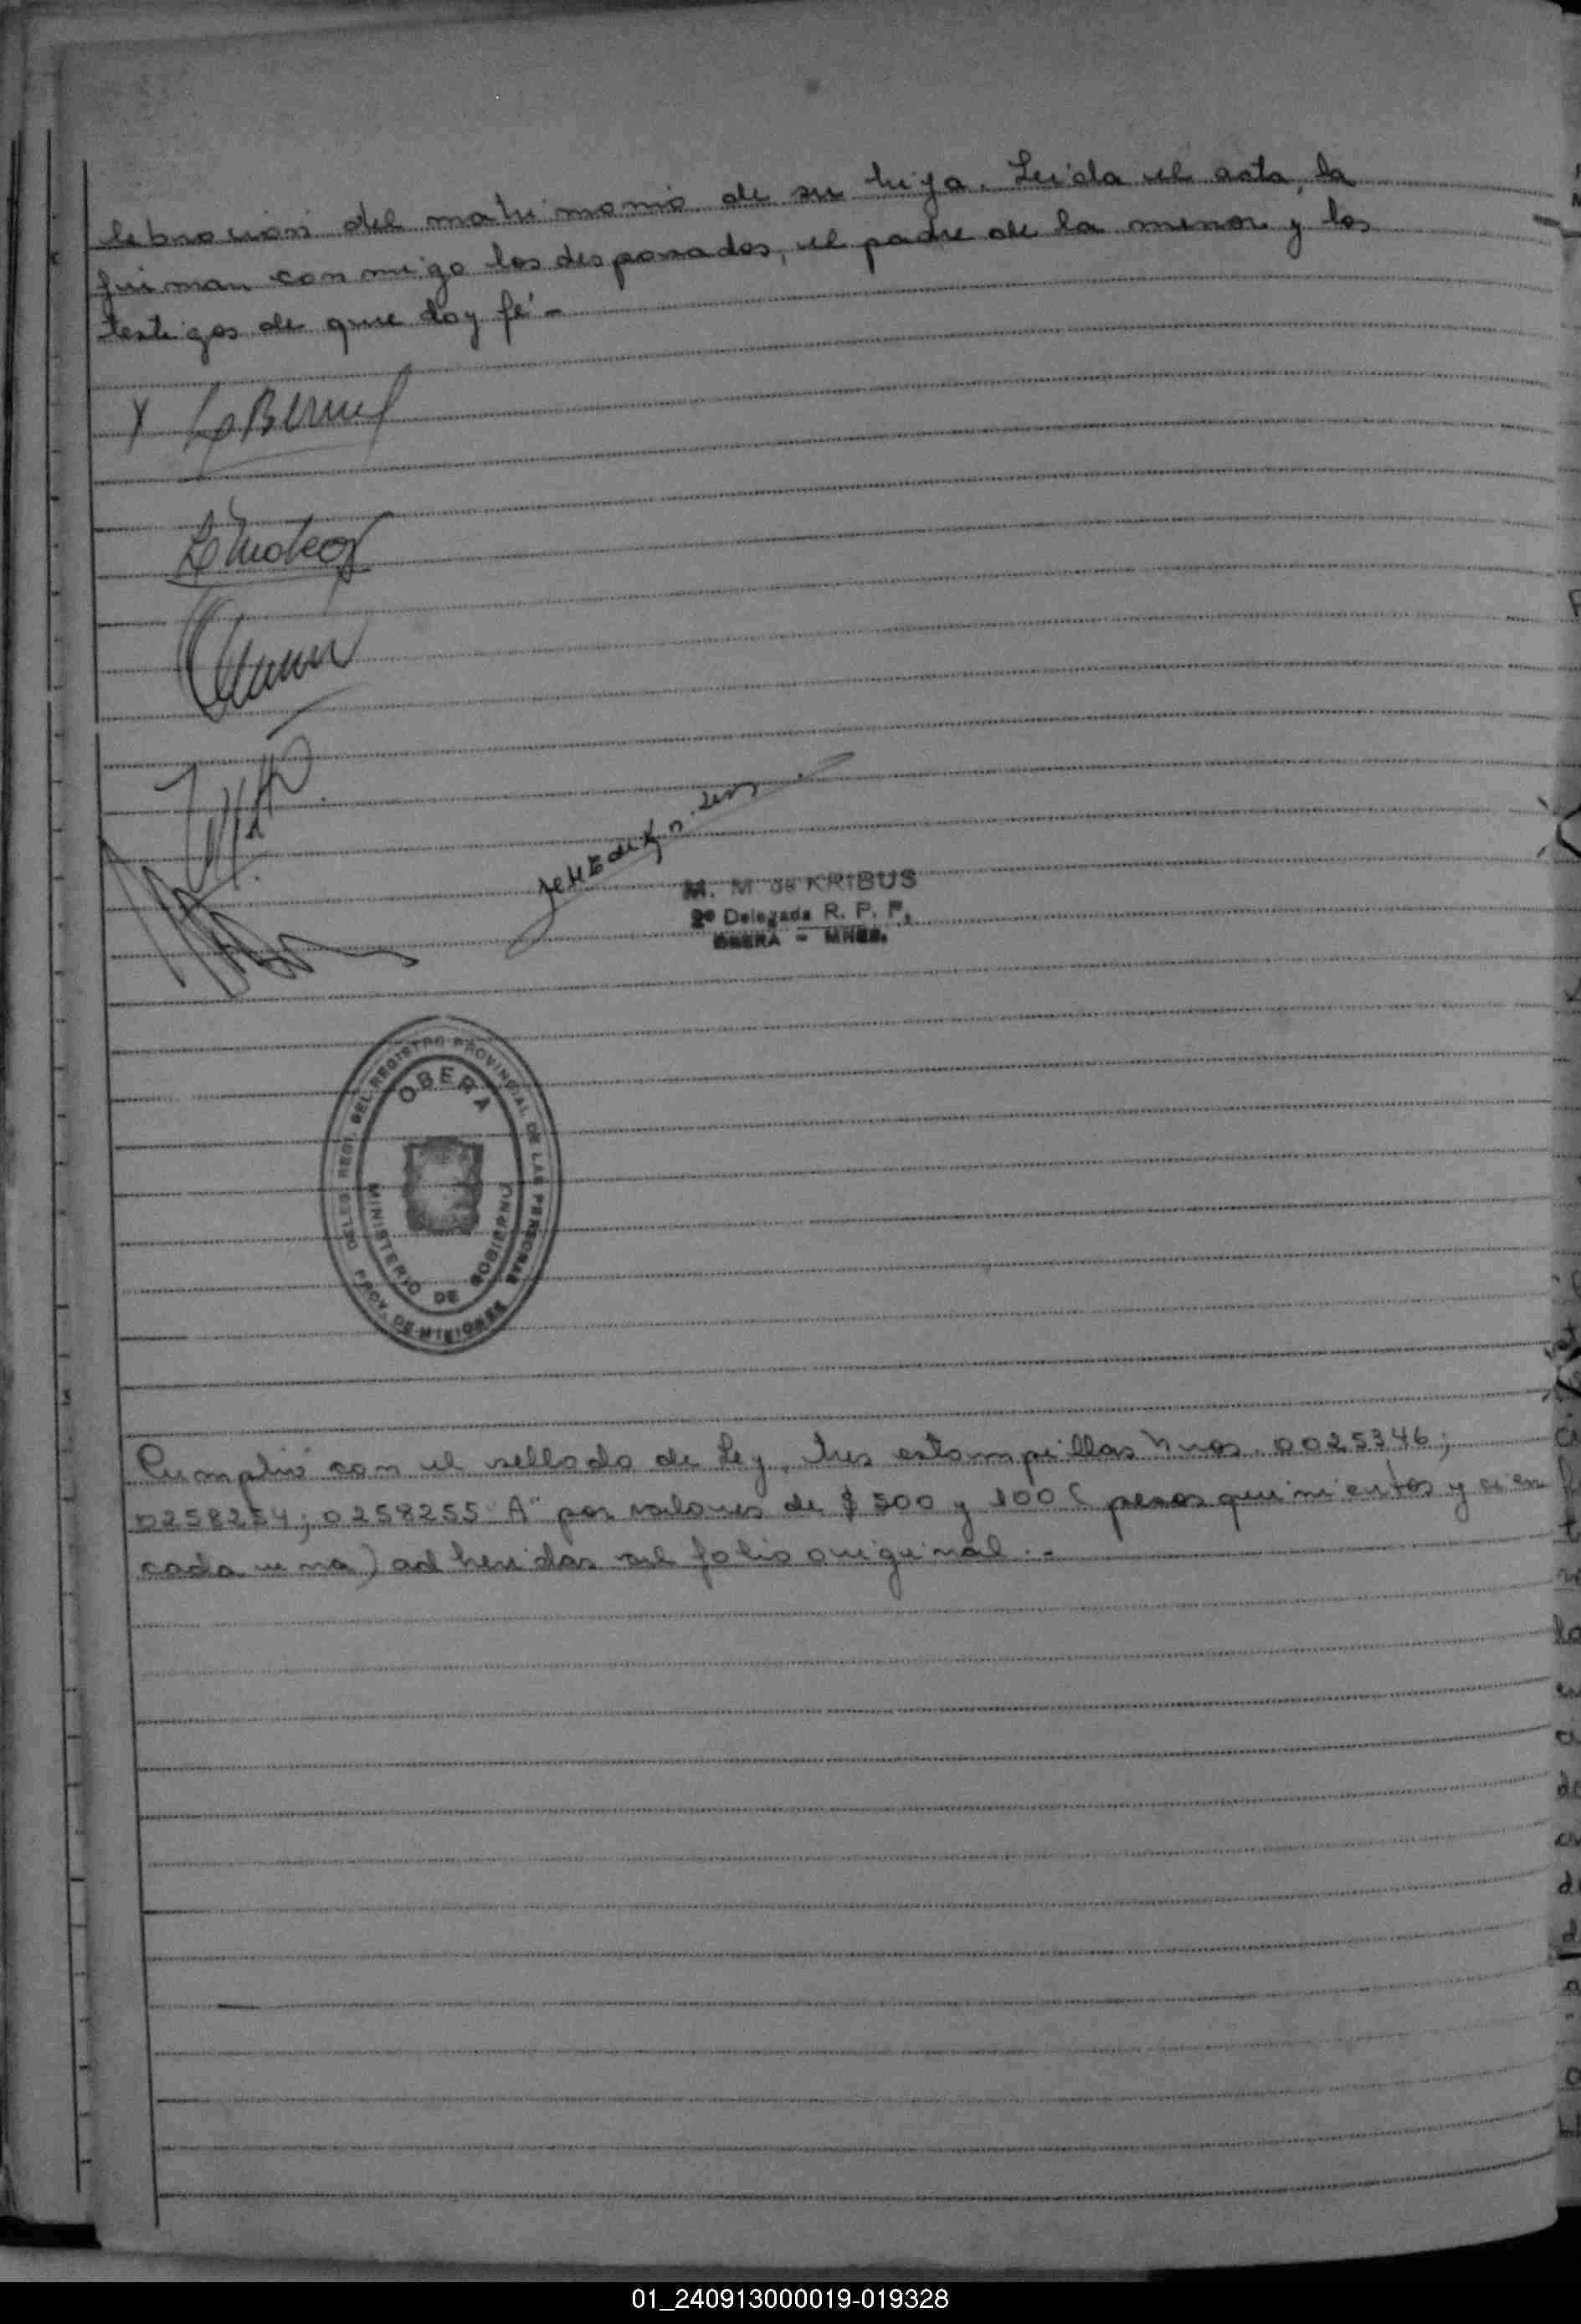 lebración del matrimonio de su hija. Leida el acta, la
firman conmigo los desposados, el padre de la menor y los
testigos de que doy fé.-
X
M. M de KRIBUS
2º Delegada R. P. P.
OBERA - MNES.
DELEG. REGI. DEL REGISTRO PROVINCIAL DE LAS PERSONAS
OBERA
MINISTERIO DE GOBIERNO
PROV. DE MISIONES
Cumplió con el sellado de Ley, tres estampillas Nros. 0025346;
0258254; 0258255 "A" por valores de $ 500 y 100 ( pesos quinientos y cien
cada una) adheridas al folio original.-
01_240913000019-019328